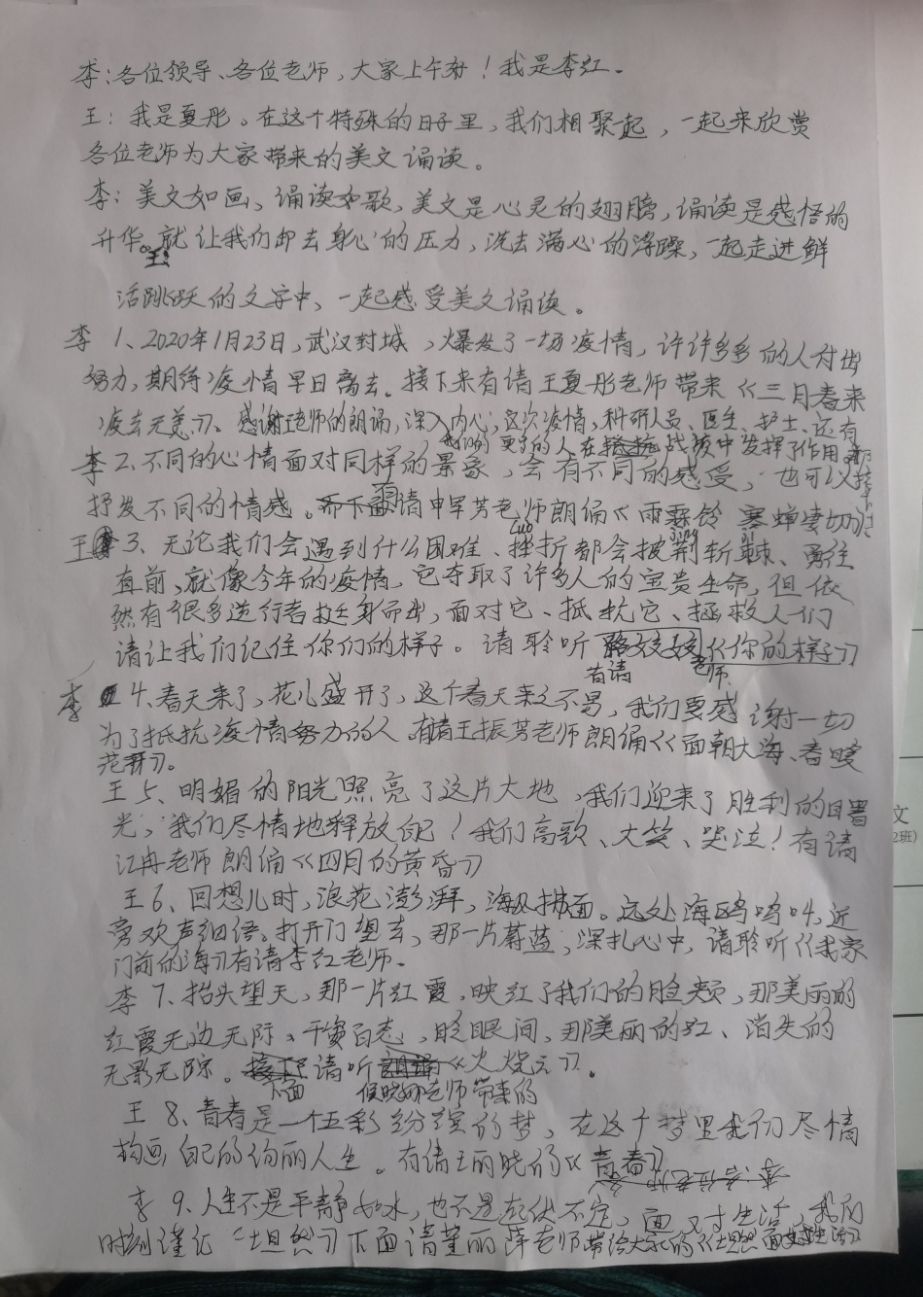 李:各位领导、各位老师,大家上午好!我是李红.
王:我是夏彤。在这个特殊的日子里,我们相聚起,一起来欣赏
各位老师为大家带来的美文诵读。
李:美文如画、诵读如歌,美文是心灵的翅膀,诵读是感悟的
升华。就让我们卸去身心的压力,洗去满心的浮躁,一起走进鲜
王:
活跳跃的文字中、一起感受美文诵读。
李 1、2020年1月23日,武汉封城,爆发了一场疫情,许许多多的人付出
努力,期待疫情早日离去。接下来有请王夏彤老师带来《三月春来
疫去无恙》、感谢王老师的朗诵,深入内心,这次疫情,科研人员、医生、护士、还有
我们的更多的人在战疫中发挥了作用
李2、不同的心情面对同样的景象,会有不同的感受,也可以
抒发不同的情感。请申芳老师朗诵《雨霖铃 寒蝉凄切》
王 3、无论我们会遇到什么困难、挫折都会披荆斩棘、勇往
直前、就像今年的疫情,它夺取了许多人的宝贵生命,但依
然有很多逆行者挺身而出,面对它、抵抗它、拯救人们
请让我们记住你们的样子。请聆听姣姣《你的样子》
有请 老师
李 4、春天来了,花儿盛开了,这个春天来之不易,我们要感谢一切
为了抵抗疫情努力的人。有请王振芳老师朗诵《面朝大海、春暖
花开》。
王 5、明媚的阳光照亮了这片大地,我们迎来了胜利的曙
光,我们尽情地释放自己!我们高歌、大笑、哭泣!有请
江冉老师朗诵《四月的黄昏》
王 6、回想儿时,浪花澎湃,海风拂面。远处海鸥鸣叫,近
旁欢声细语。打开门望去,那一片蔚蓝,深扎心中,请聆听《我家
门前的海》有请李红老师.
李 7、抬头望天,那一片红霞,映红了我们的脸颊,那美丽的
红霞无边无际、千姿百态,眨眼间,那美丽的红、消失的
无影无踪。请听《火烧云》。
下面 侯晓娜老师带来的
王 8、青春是一个五彩缤纷的梦,在这个梦里我们尽情
构画自己的绚丽人生。有请王丽晓的《青春》
李 9、人生不是平静如水,也不是起伏不定,面对生活,我们
时刻谨记“坦然”下面请董丽萍老师带给大家的《坦然面对生活》